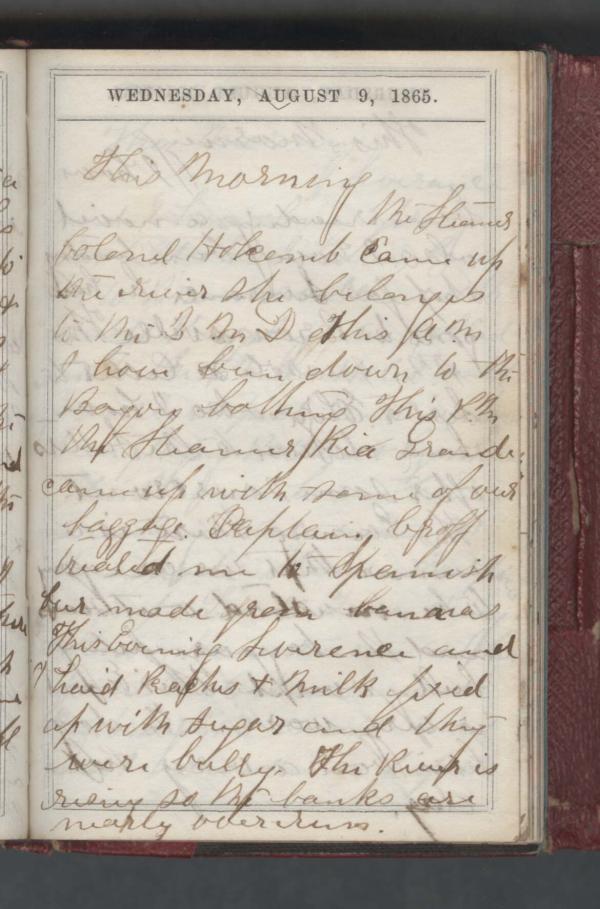 WEDNESDAY, AUGUST 9, 1865.
This Morning
the Steamer
Colonel Holcomb Came up
the river she belonges
to the Q M D This A M
I have been down to the
Bayou bathing This P.M
the Steamer Ria Grande
came up with some of our
baggage. Captain
treated me to Spanish
made green bananas
This Evening Lwrence and
I haid Peaches & Milk fixed
up with sugar and they
were bully. The River is
rieing so the banks are
nearly overrun.